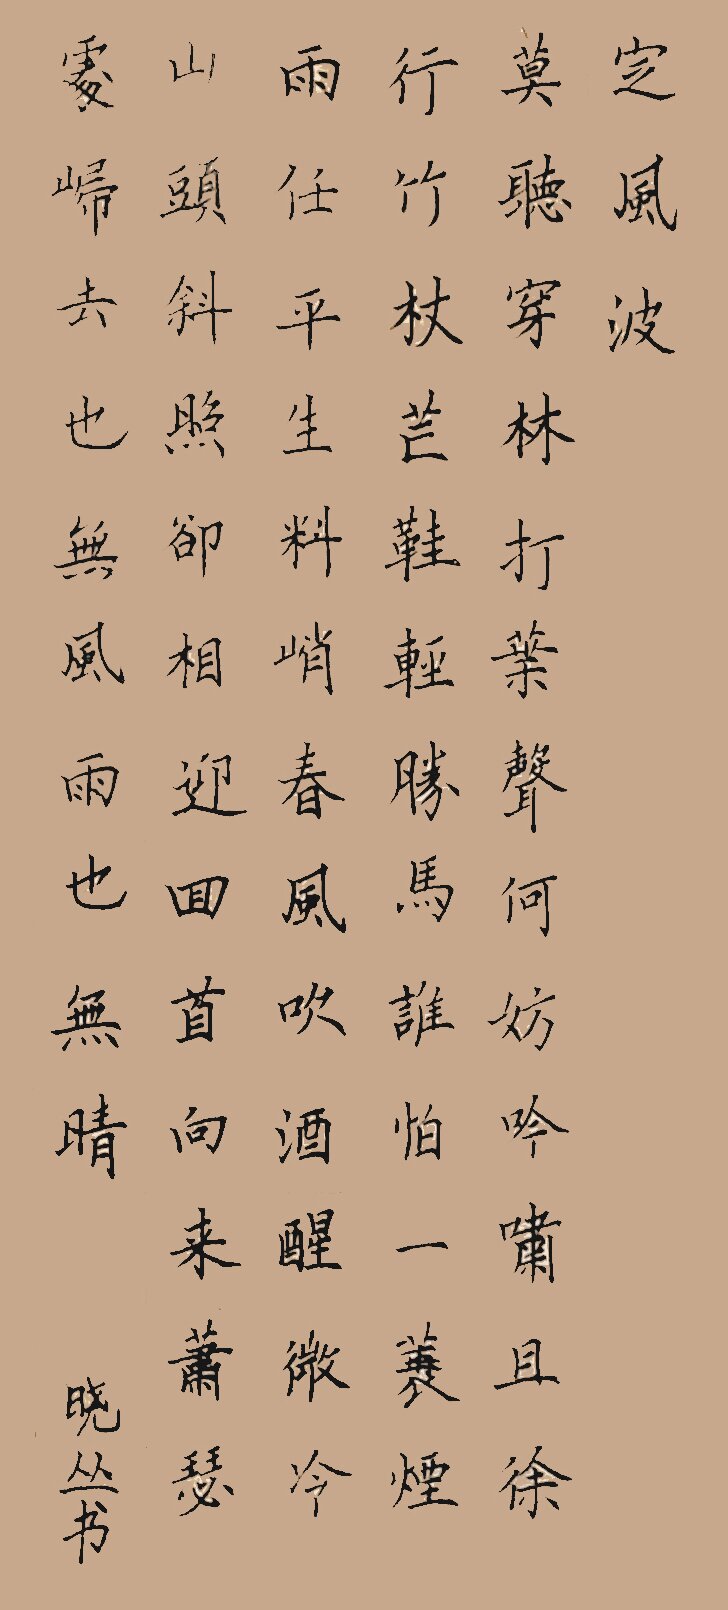 定風波
莫聽穿林打葉聲何妨吟嘯且徐
行竹杖芒鞋輕勝馬誰怕一蓑煙
雨任平生料峭春風吹酒醒微冷
山頭斜照卻相迎回首向来蕭瑟
處歸去也無風雨也無晴
晓丛书